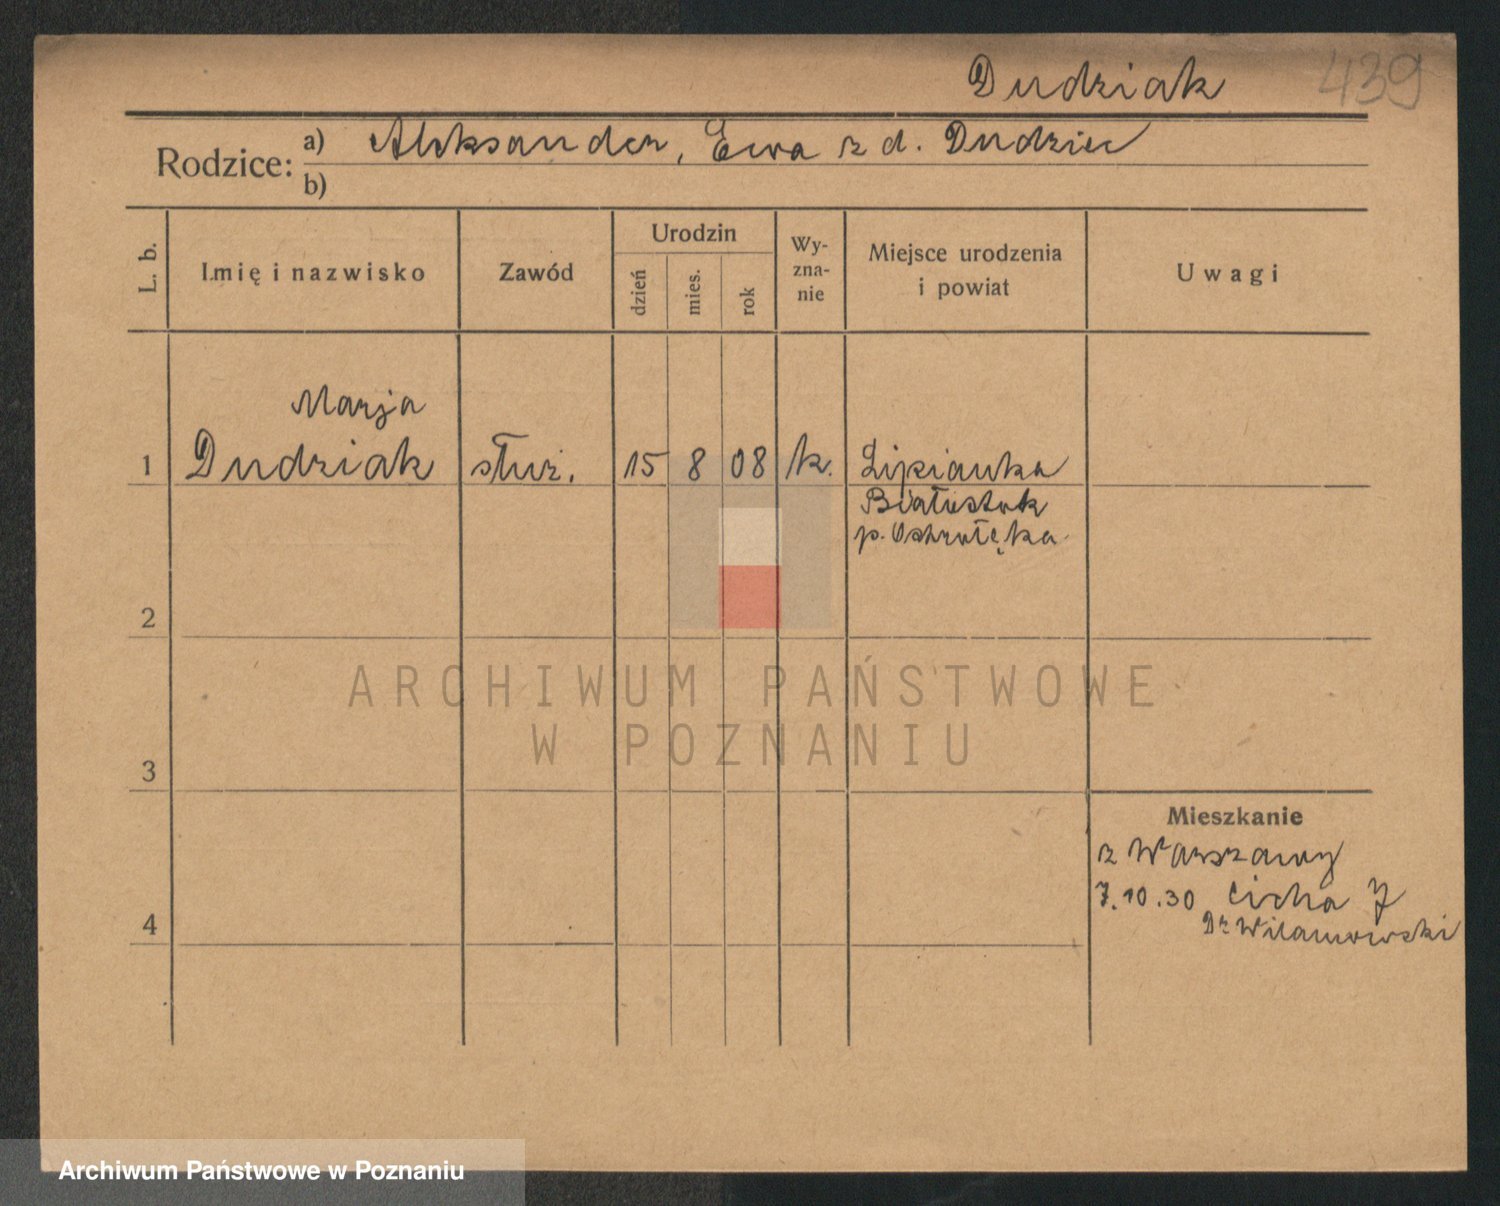 Dudziak 439
Rodzice: a) Aleksander, Ewa z d. Dudziec
b)
L. b.
Imię i nazwisko
Zawód
Urodzin
dzień
mies.
rok
Wy-
zna-
nie
Miejsce urodzenia
i powiat
Uwagi
Marja
1 Dudziak służ. 15 8 08 k. Lipianka
Białystok
p. Ostrołęka
2
3
4
Mieszkanie
z Warszawy
7.10.30 Cicha 7
Dr Wilamowski
ARCHIWUM PAŃSTWOWE
W POZNANIU
Archiwum Państwowe w Poznaniu